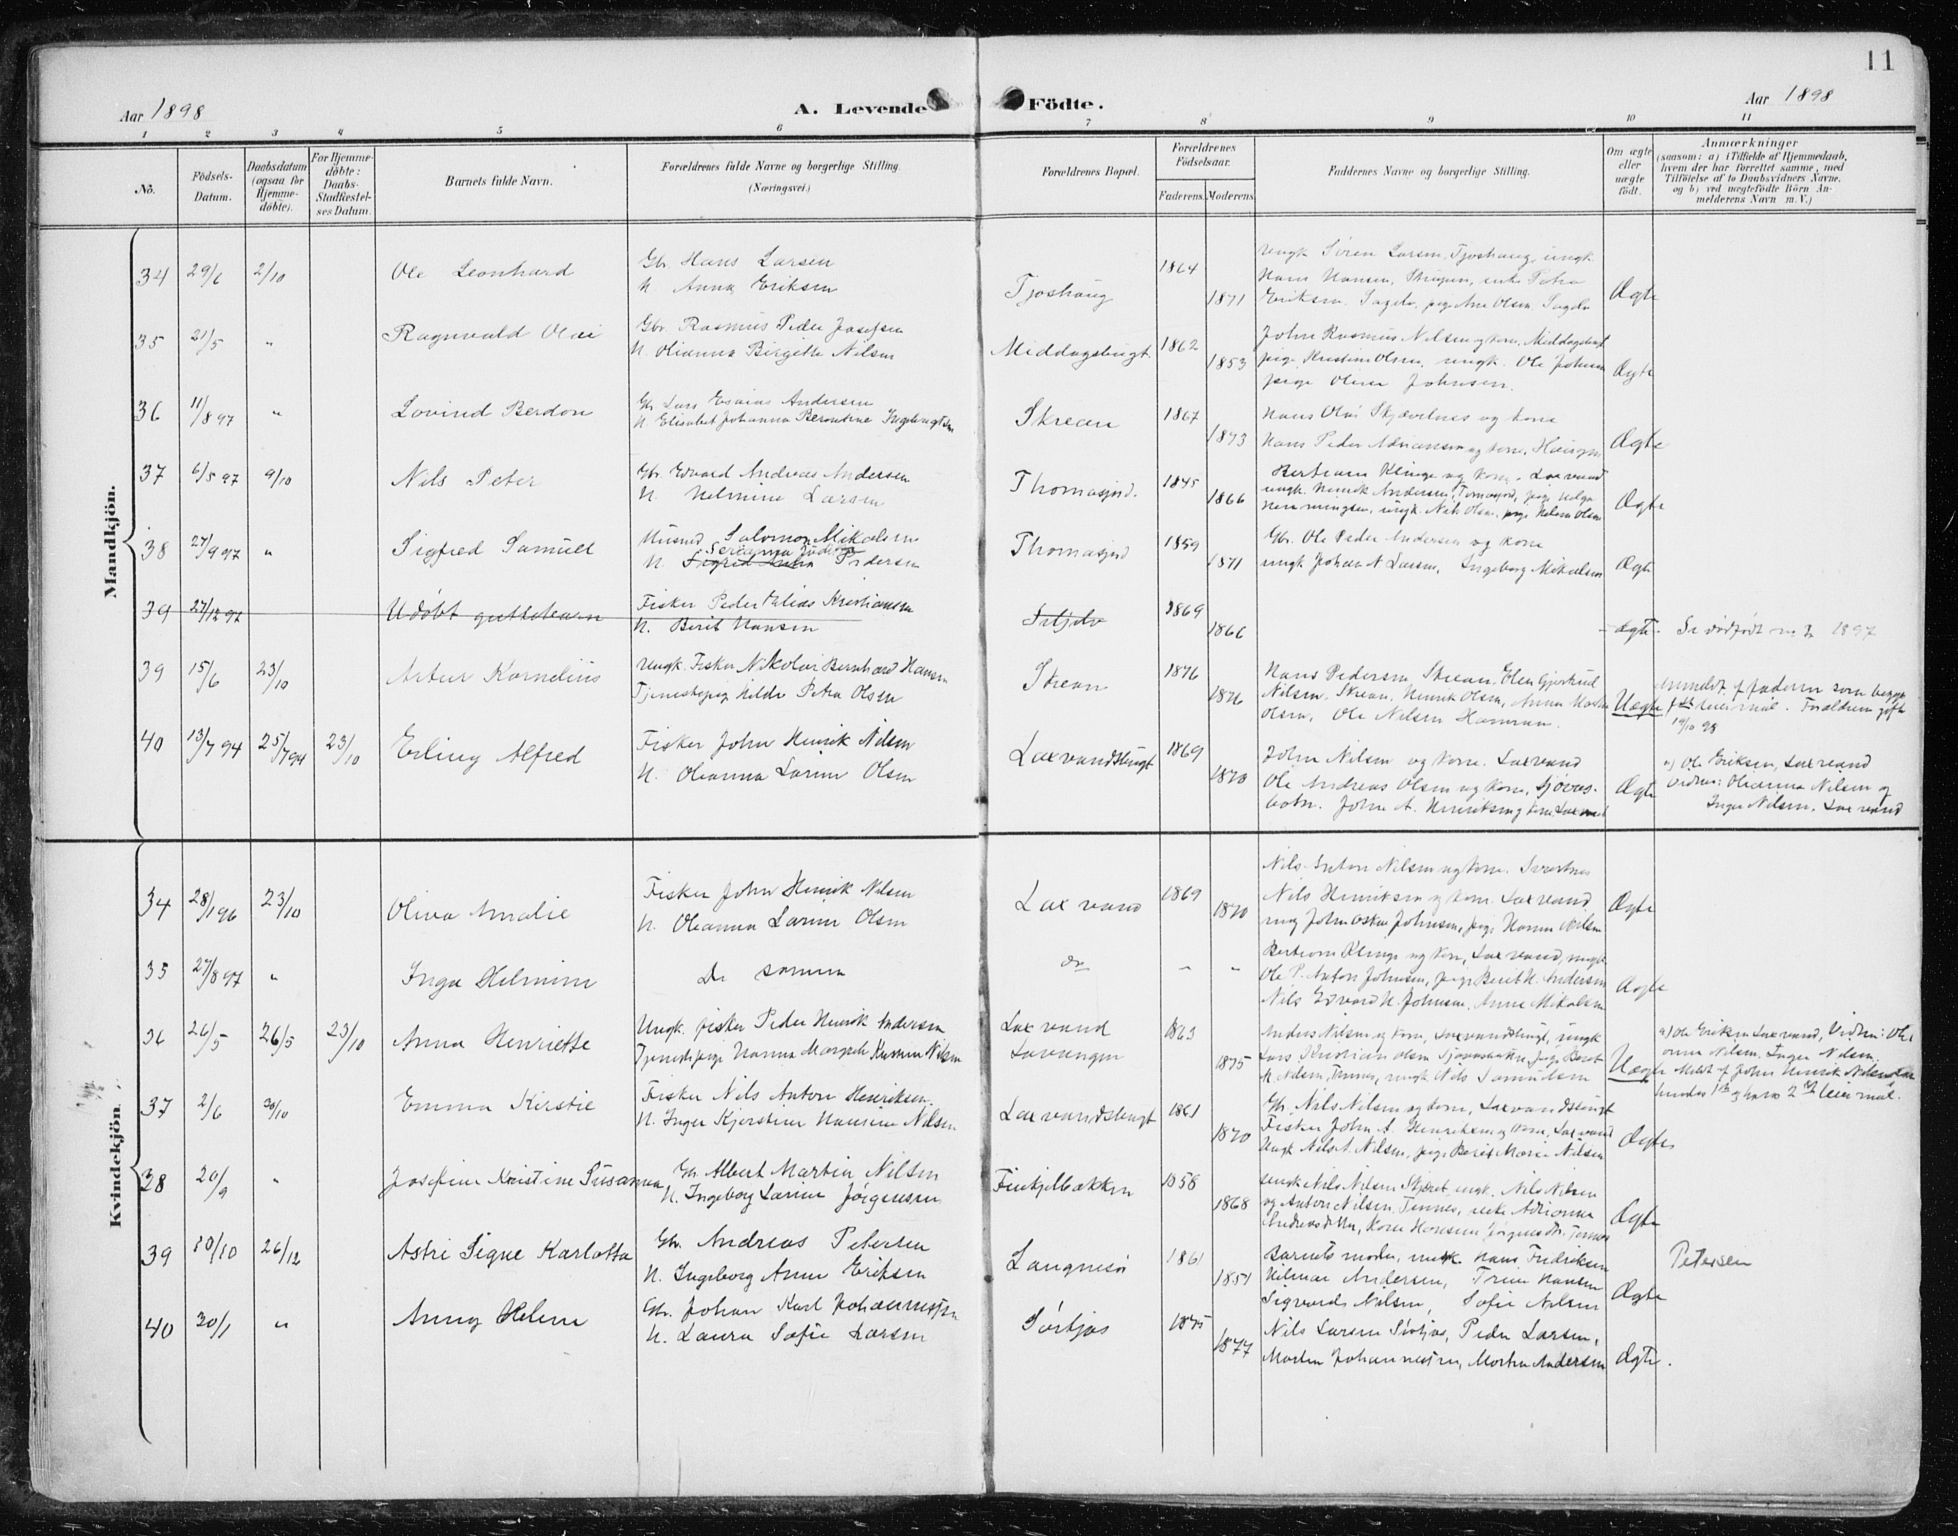 11
Aar 1898
A. Levende Födte.
Aar 1898
1 2 3 4 5 6 7 8 9 10 11
No.
Födsels-Datum.
Daabsdatum (ogsaa for Hjemme-döbte).
For Hjemme-döbte: Daabs-Stadfæstel-ses Datum.
Barnets fulde Navn.
Forældrenes fulde Navne og borgerlige Stilling.
(Næringsvei.)
Forældrenes Bopæl.
Forældrenes Födselsaar.
Faderens. Moderens.
Faddernes Navne og borgerlige Stilling.
Om ægte eller uægte födt.
Anmærkninger
(saasom: a) i Tilfælde af Hjemmedaab,
hvem der har forrettet samme, med
Tilföielse af to Daabsvidners Navne,
og b) ved uægtefödte Börn An-
melderens Navn m. V.)
Mandkjön.
34 29/6 2/10 Ole Leonhard
Gbr. Hans Larsen
H. Anna Eriksen
Tjoshaug 1864 1871
ungk Sören Larsen, Tjoshaug, ungk
Hans Hansen,
Eriksen
Ægte
35 21/5 " Ragnvald Olai
Gbr. Rasmus Peder Josefsen
H. Olianna Birgitte Nilsen
Middagsbugt. 1862 1853
John Rasmus Nilsen og kone, Middagsbugt
pige Kristine Olsen, ungk. Ole Johnsen
pige Oline Johnsen.
Ægte
36 11/8 97 " Lovind Berdon
Gbr Lars Esaias Andersen
H. Elisabet Johanna Berontine Ingebrigtsen
Skrean 1867 1873
Hans Olai Skjævelnes og kone
Hans Peder Adriansen og kone,
Ægte
37 6/5 97 9/10 Nils Peter
Gbr. Edvard Andreas Andersen
H. Helmine Larsen
Thomasjord. 1845 1866
Bertheus Klinge og kone. Laxvand
ungk. Henrik Andersen, Tomasjord, pige Helga
Henningsen, ungk. Nils Olsen, pige Helene Olsen
Ægte
38 27/9 97 " Sigfred Samuel
Husmd Salomon Mikalsen
H. Sigrid Anna Pedersen
Thomasjord 1859 1871
Gbr. Ole Peder Andersen og kone
ungk Johan N Larsen, Ingeborg Mikalsen
Ægte
39 27/12 97 Udöbt guttebarn
Fisker Peder Elias Kristiansen
H. Berit Hansen
1869 1866
Ægte. Se dödfödt no 2 1897
39 15/6 23/10 Artur Kornelius
Ungk. Fisker Nikolai Bernhard Hansen
Tjenestepige Hilda Petra Olsen
Skrean 1876 1876
Hans Pedersen, Skrean,
Nilsen, Skrean, Henrik Olsen, Anna
Olsen, Ole Nilsen Hamran.
Uægte
Anmeldt af faderen som begges
1ste leiermaal. Forældrene gifte
19/10 98
40 13/7 94 25/7 94 23/10 Erling Alfred
Fisker John Henrik Nilsen
H. Oleanna Larine Olsen
Laxvandsbugt 1869 1870
John Nilsen og kone. Laxvand
Ole Andreas Olsen og kone, Sjövas-
botn. John A. Henriksen og kone. Laxvand
Ægte
a) Ole Eriksen, Laxvand
Vidner: Olianna Nilsen og
Inger Nilsen. Laxvand
Kvindekjön.
34 28/1 96 23/10 Oliva Amalie
Fisker John Henrik Nilsen
H. Oleanna Larine Olsen
Laxvand 1869 1870
Nils Anton Nilsen og kone.
Nils Henriksen og kone. Laxvand
ung John Oskar Johnsen, pige Hanna Nilsen
Ægte
35 27/8 97 " Inga Helmine
De samme
do – –
Bertheus Klinge og kone, Laxvand, ungk.
Ole P. Anton Johnsen, pige Berit H. Andersen
Nils Edvard N. Johnsen, Anne Mikalsen
Ægte
36 26/5 26/5 23/10 Anna Henriette
Ungk. fisker Peder Henrik Andersen
Tjenestepige Hanna Margrete Kirstine Nilsen
Laxvand
Lavangen
1863 1875
Anders Nilsen og kone, Laxvandsbugt, ungk
Lars Kristian Olsen Sjövasbotn, pige Beret
M. Nilsen, Tennes, ungk Nils Samuelsen
Uægte
a) Ole Eriksen Laxvand, Vidner: Ole
anna Nilsen. Inger Nilsen.
Meldt af John Henrik Nilsen
hendes 1ste og hans 2det leiermaal.
37 2/6 30/10 Emma Kirstie
Fisker Nils Anton Henriksen.
H. Inger Kjerstine Hansine Nilsen
Laxvandsbugt 1861 1870
Gbr. Nils Nilsen og kone, Laxvandsbugt
Fisker John A. Henriksen og kone, Laxvand
Ungk Nils A. Nilsen, pige Berit Marie Nilsen
Ægte
38 20/9 " Josefine Kristine Susanna
Gbr. Albert Martin Nilsen
H. Ingeborg Larine Jörgensen
Finkjelbækken 1858 1868
ungk Nils Nilsen Skjæret, ungk. Nils Nilsen
og Anton Nilsen, Tennes, enke Adrianna
Andreasdatter, Kone Hansine Jörgensdtr. Tennes
Ægte
39 10/10 26/12 Astri Signe Karlotta
Gbr. Andreas Petersen
H. Ingeborg Anne Eriksen
Langnesör 1861 1851
Barnets moder, ungk. Hans Fredriksen
Hilmar Andersen, Trine Hansen
Sigvards Nilsen, Sofie Nilsen
Ægte
Petersen
40 30/1 " Anny Helene
Gbr. Johan Karl Johannessen
H. Laura Sofie Larsen
Sörkjos 1875 1877
Nils Larsen Sörkjos, Peder Larsen,
Morten Johannessen, Morten Andersen
Ægte.